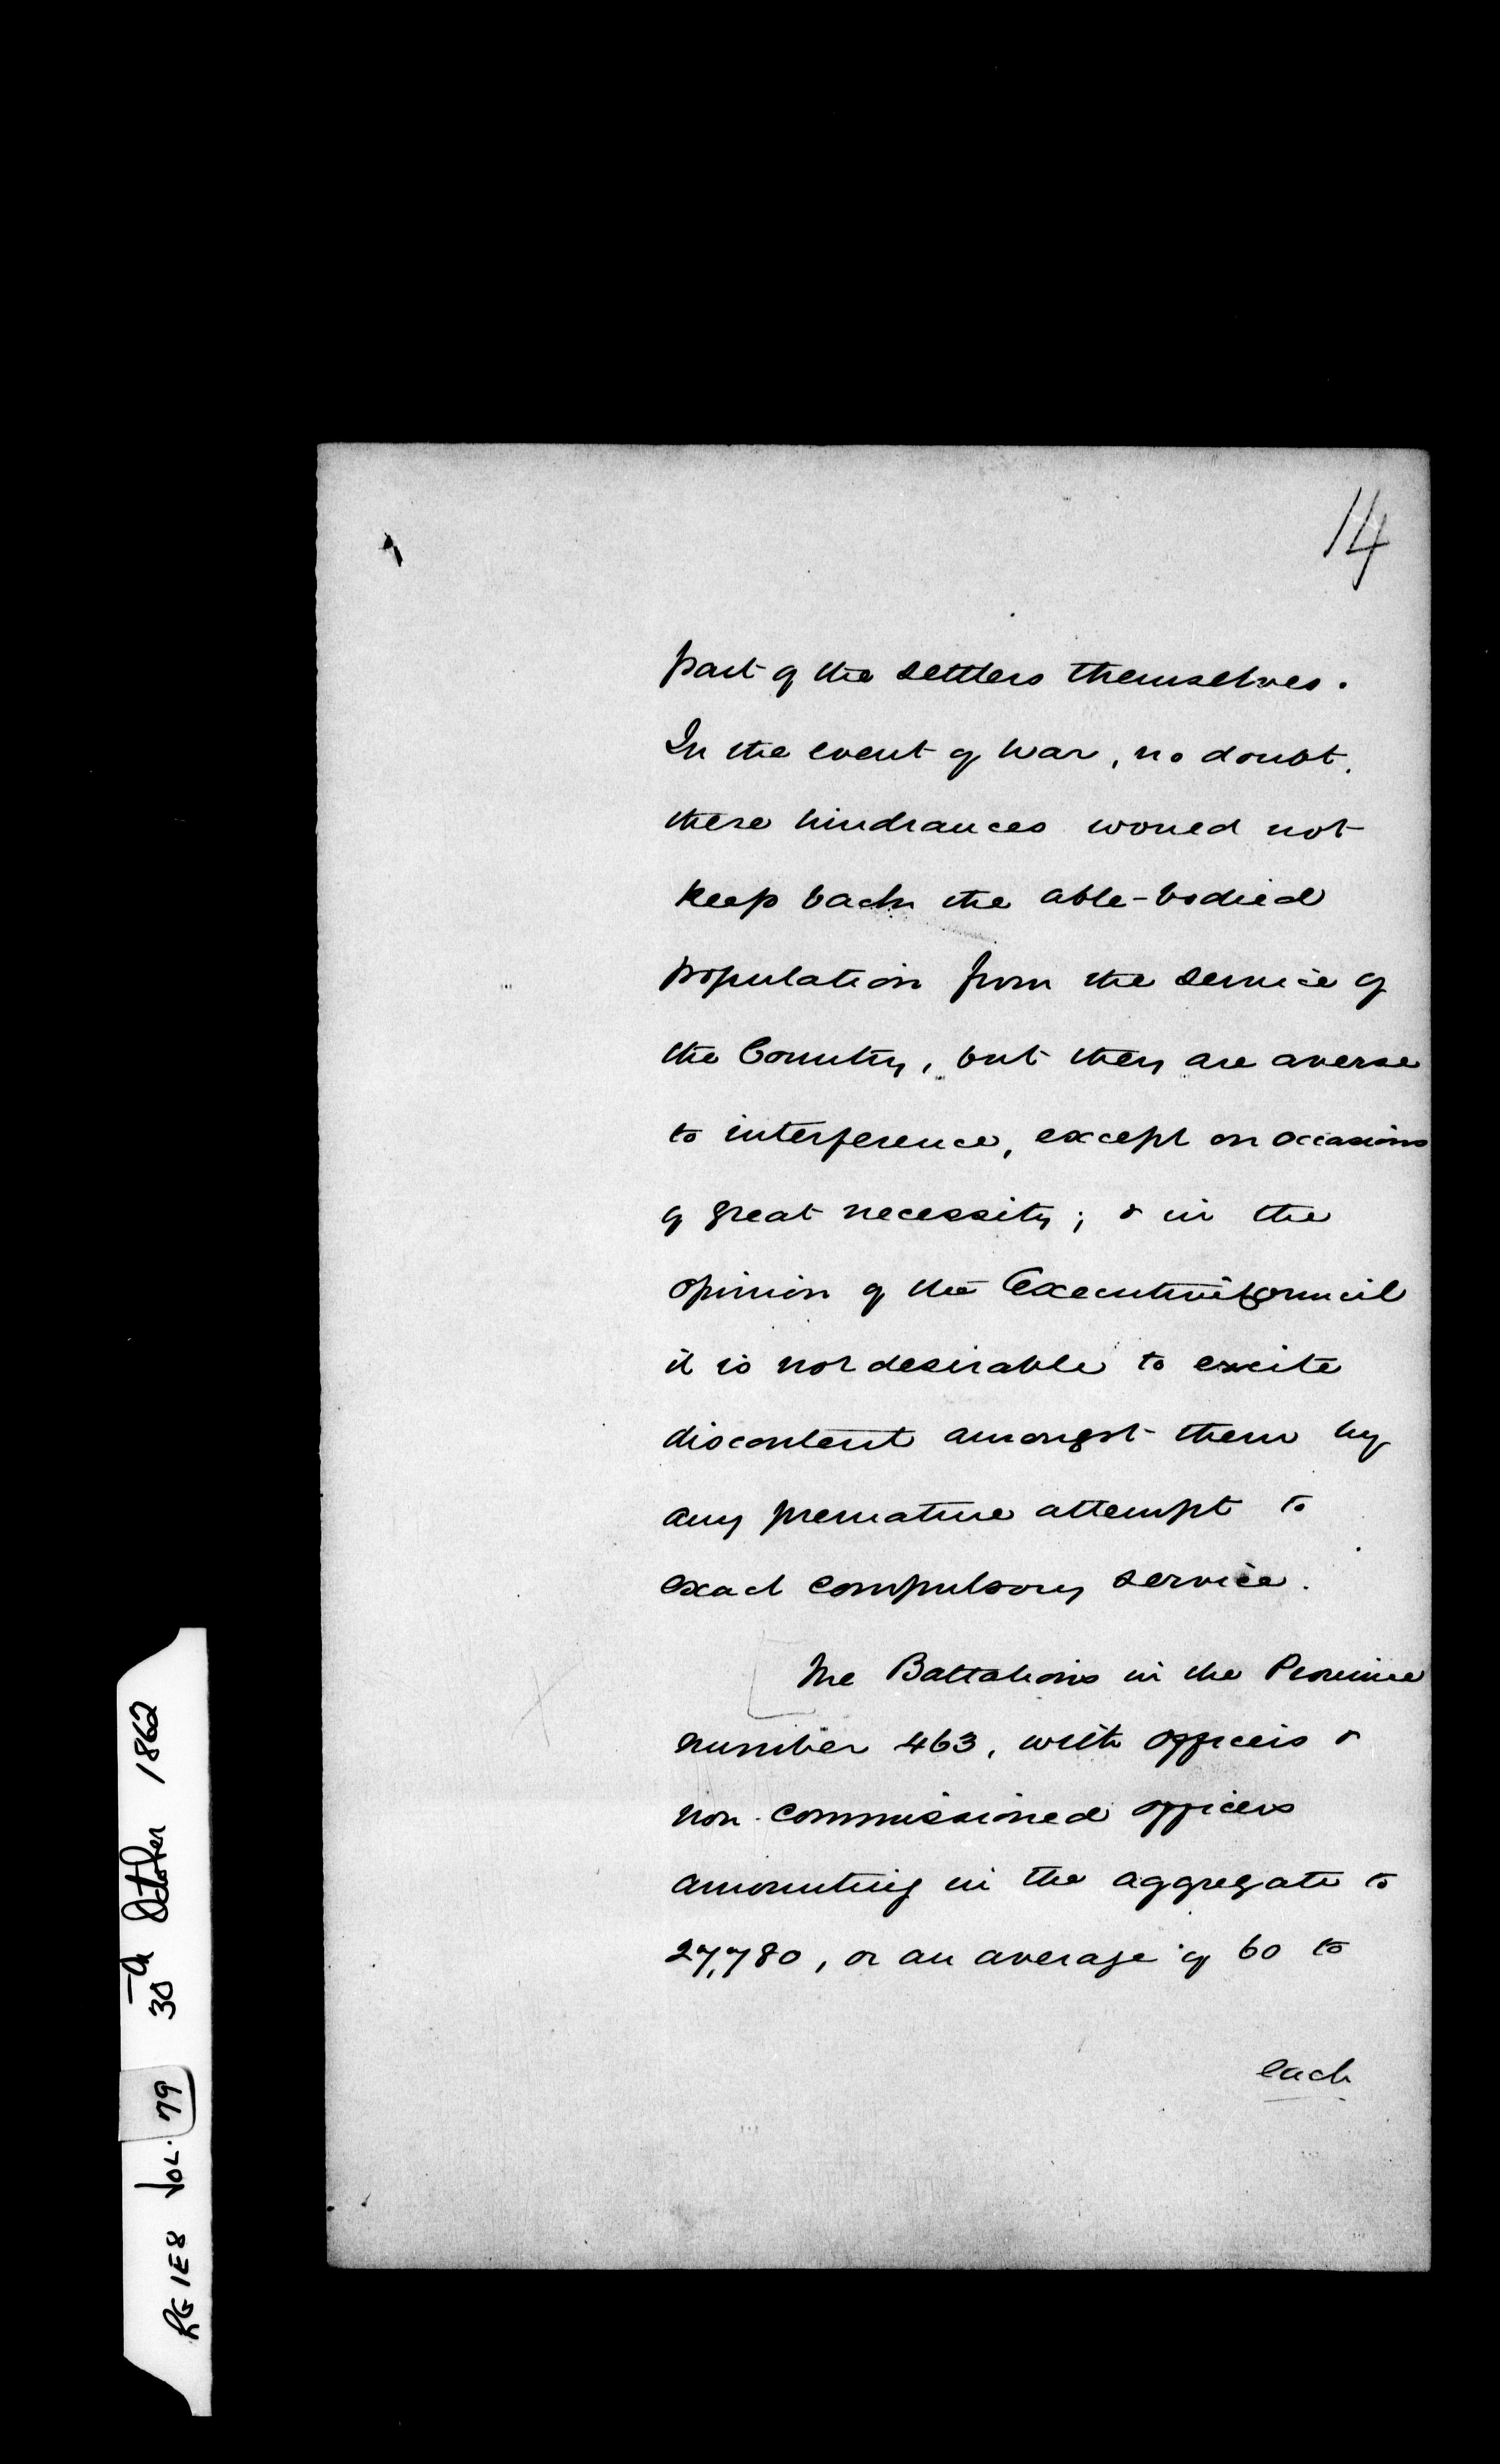 14
part of the settlers themselves.
In the event of war, no doubt,
these hindrances would not
keep back the able-bodied
population from the service of
the Country, but they are averse
to interference, except on occasions
of great necessity; & in the
opinion of the Executive Council
it is not desirable to excite
discontent amongst them by
any premature attempt to
exact compulsory service.
The Battalions in the Province
number 463, with officers &
non-commissioned officers
amounting in the aggregate to
27,780, or an average of 60 to
each
RG 1E8 VOL. 79 30th October 1862